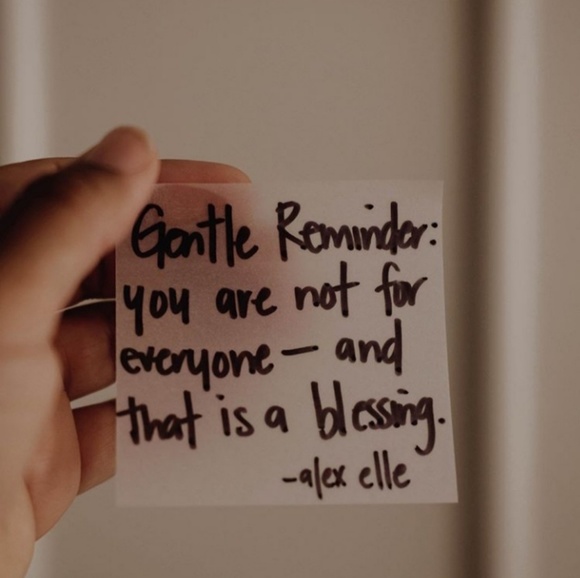 Gentle Reminder:
you are not for
everyone — and
that is a blessing.
-alex elle